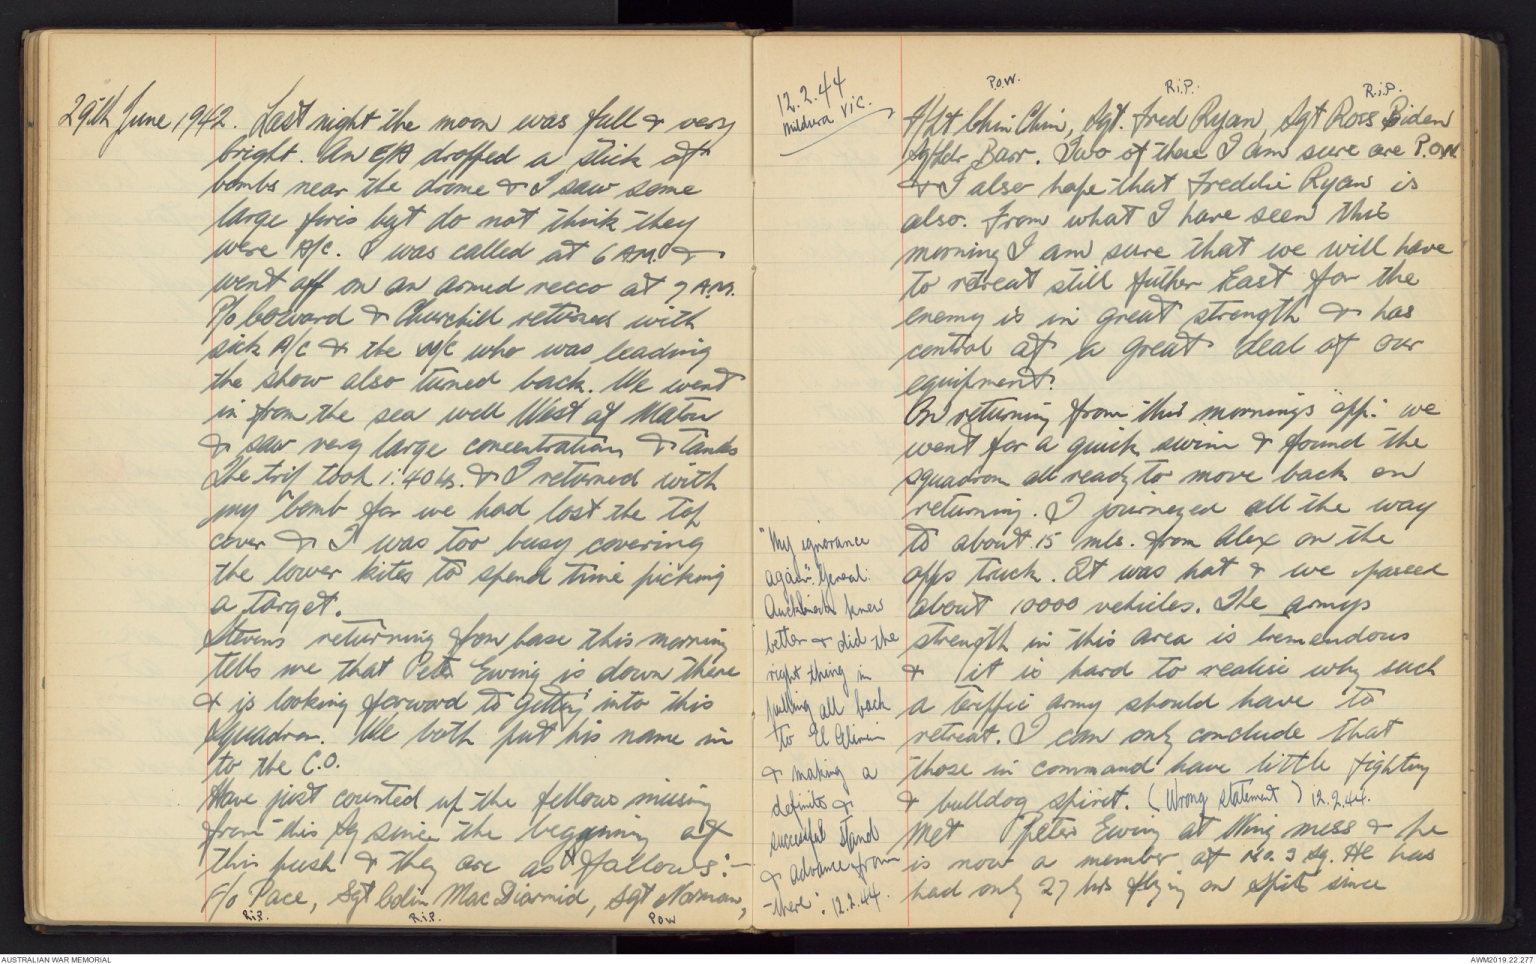 29th June 1942. Last night the moon was full & very
bright. An E/A dropped a stick of
bombs near the drome & I saw some
large fires but do not think they
were A/C. I was called at 6 A.M. &
went off on an armed recco at 7 A.M.
P/O Coward & Churchill returned with
sick A/C & the W/C who was leading
the show also turned back. We went
in from the sea well West of Matru
& saw very large concentrations & tanks
The trip took 1:40 hrs. & I returned with
my bomb for we had lost the top
cover & I was too busy covering
the lower kites to spend time picking
a target.
Stevens returning from base this morning
tells me that Pete Ewing is down there
& is looking forward to getting into this
Squadron. We both put his name in
to the C.O.
Have just counted up the fellows missing
from this Sq since the beginning of
this push & they are as follows:-
F/O Pace, Sgt Colin MacDiarmid, Sgt Norman,
R.i.P. R.i.P. POW
12.2.44
Mildura Vic.
P.O.W. R.i.P. R.i.P.
F/Lt Chin Chin, Sgt. Fred Ryan, Sgt Ross Biden
Sq/Ldr Barr. Two of these I am sure are P.O.W.
& I also hope that Freddie Ryan is
also. From what I have seen this
morning I am sure that we will have
to retreat still futher East for the
enemy is in great strength & has
control of a great deal of our
equipment.
On returning from this mornings opp: we
went for a quick swim & found the
squadron all ready to move back on
returning. I journeyed all the way
to about 15 mls. from Alex on the
opps truck. It was hot & we passed
about 10000 vehicles. The armys
strength in this area is tremendous
& it is hard to realise why such
a teriffic army should have to
retreat. I can only conclude that
those in command have little fighting
& bulldog spirit. (Wrong statement) 12.2.44.
Met Peter Ewing at Wing mess & he
is now a member of No. 3 Sq. He has
had only 27 hrs flying on Spits since
"My ignorance
again". General:
Auchinleck knew
better & did the
right thing in
pulling all back
to El Alimein
& making a
definite &
successful stand
& advance from
there". 12.2.44.
AUSTRALIAN WAR MEMORIAL
AWM2019.22.277